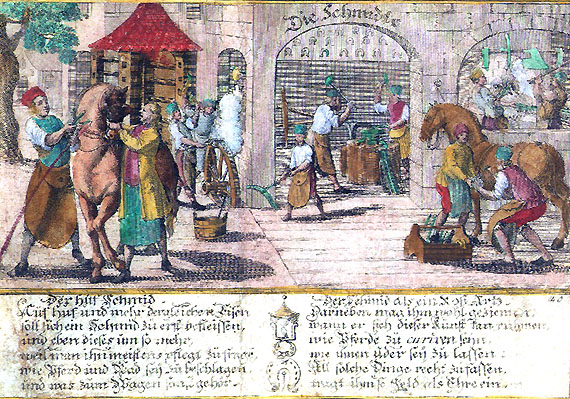 Die Schmidte
Der huff Schmid.
Auf huf und mehr dergleichen Eisen
soll sich ein Schmid zu erst befleissen,
und eben dieses um so mehr,
weil man ihn meistens pflegt zu fragen
wie Pferd und Rad sey zu beschlagen
und was zum Wagen gehör.
Der Schmid als ein Roß Artz.
Darneben mag ihm wohl geziemen,
wann er sich dieser Kunst kan
wie Pferde zu curiren seyn,
wie ihnen Ader sey zu lassen
All solche Dinge recht zu fassen,
tragt ihm so Geld als Ehre ein.